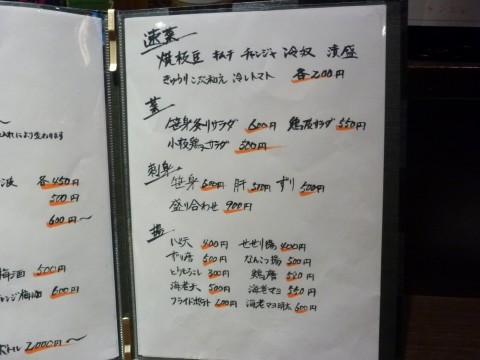 入れにより変わります
各450円
500円
600円〜
梅酒 500円
梅酒 600円
ボトル 2,000円〜
速菜
焼枝豆 キムチ チャンジャ 冷奴 漬盛
きゅうりごま和え 冷しトマト 各200円
菜
笹身祭りサラダ 600円 鶏皮サラダ 550円
小枝鶏っ子サラダ 300円
刺身
笹身 600円 肝 500円 ずり 500円
盛り合わせ 900円
揚
400円 せせり揚 400円
ずり唐 500円 なんこつ揚 500円
300円 鶏唐 520円
海老天 500円 海老マヨ 550円
フライドポテト 600円 海老マヨ明太 600円